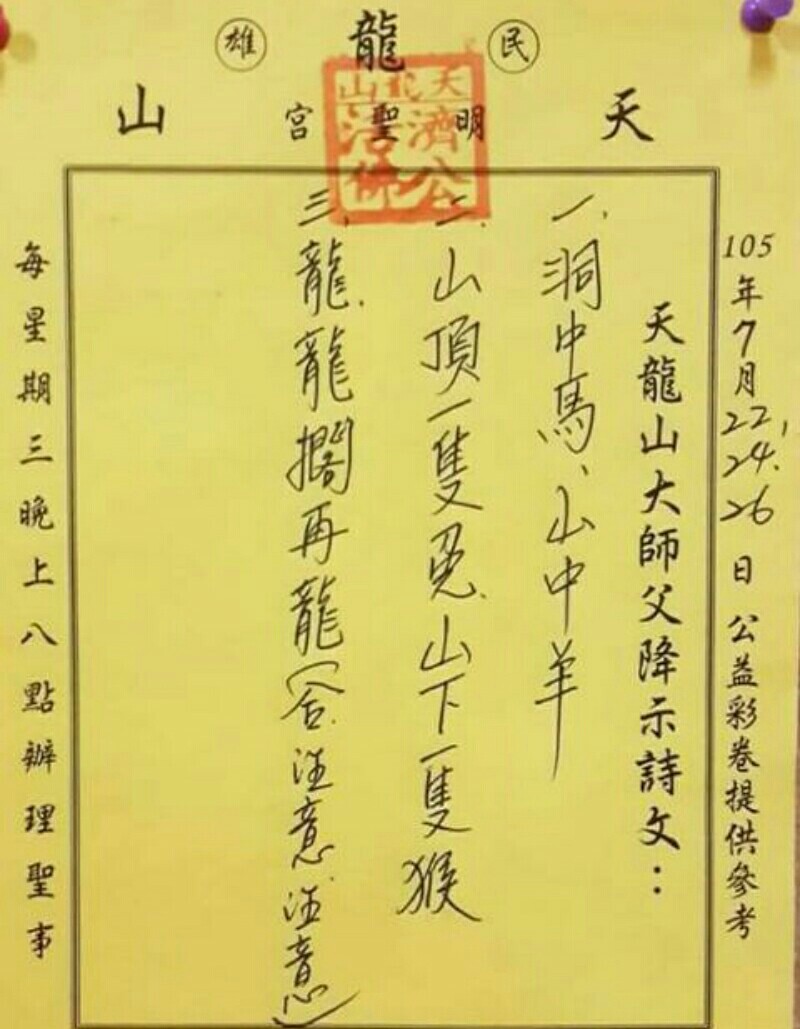 民龍雄
天明聖宮山
濟公
活佛
105年7月22,24.26日公益彩卷提供參考
天龍山大師父降示詩文：
一、洞中馬、山中羊
二、山頂一隻兔.山下一隻猴
三、龍.龍擱再龍(合.注意注意)
每星期三晚上八點辦理聖事